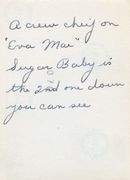 A crew cheif on
"Eva Mae"
Sugar Baby is
the 2nd one down
you can see